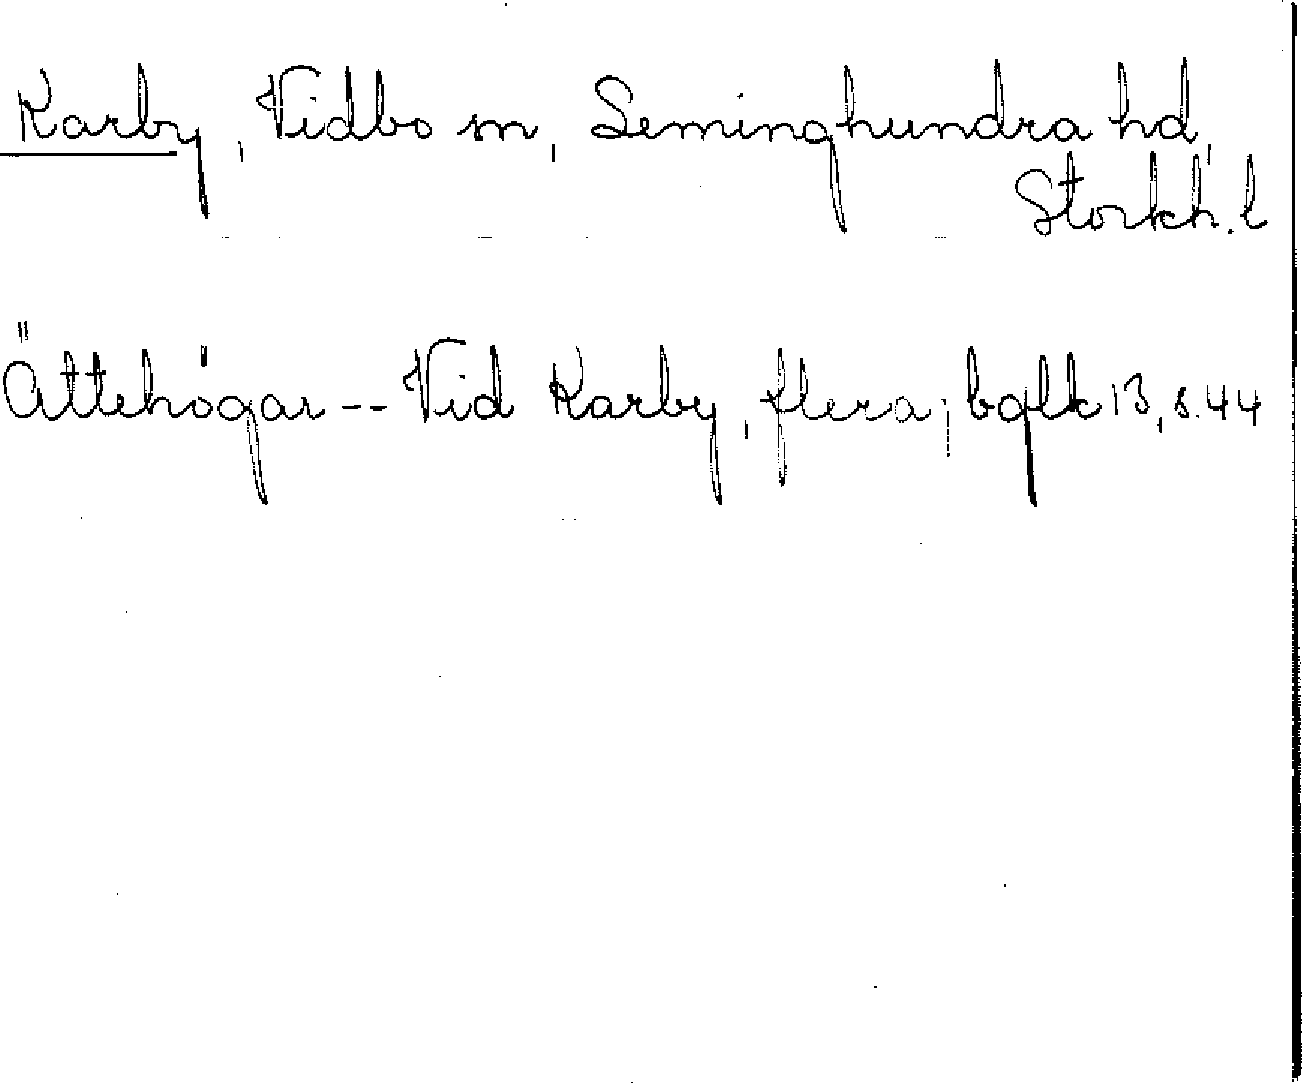 Karby, Vidbo sn, Seminghundra hd,
Storkh. l
Ättehögar -- Vid Karby, flera; bqlk 13, s. 44